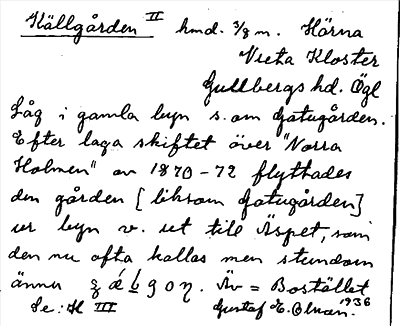 Källgården II hmd. 3/8 m. Hörna
Vreta Kloster
Gullbergs hd. Ögl
Låg i gamla byn s. om Gatugården.
Efter laga skiftet över "Norra
Holmen" av 1870-72 flyttades
den gården [liksom Gatugården]
ur byn v. ut till Äspet, som
den nu ofta kallas men stundom
ännu Äv = Bostället
Se: H III Gustaf E. Olsson. 1936